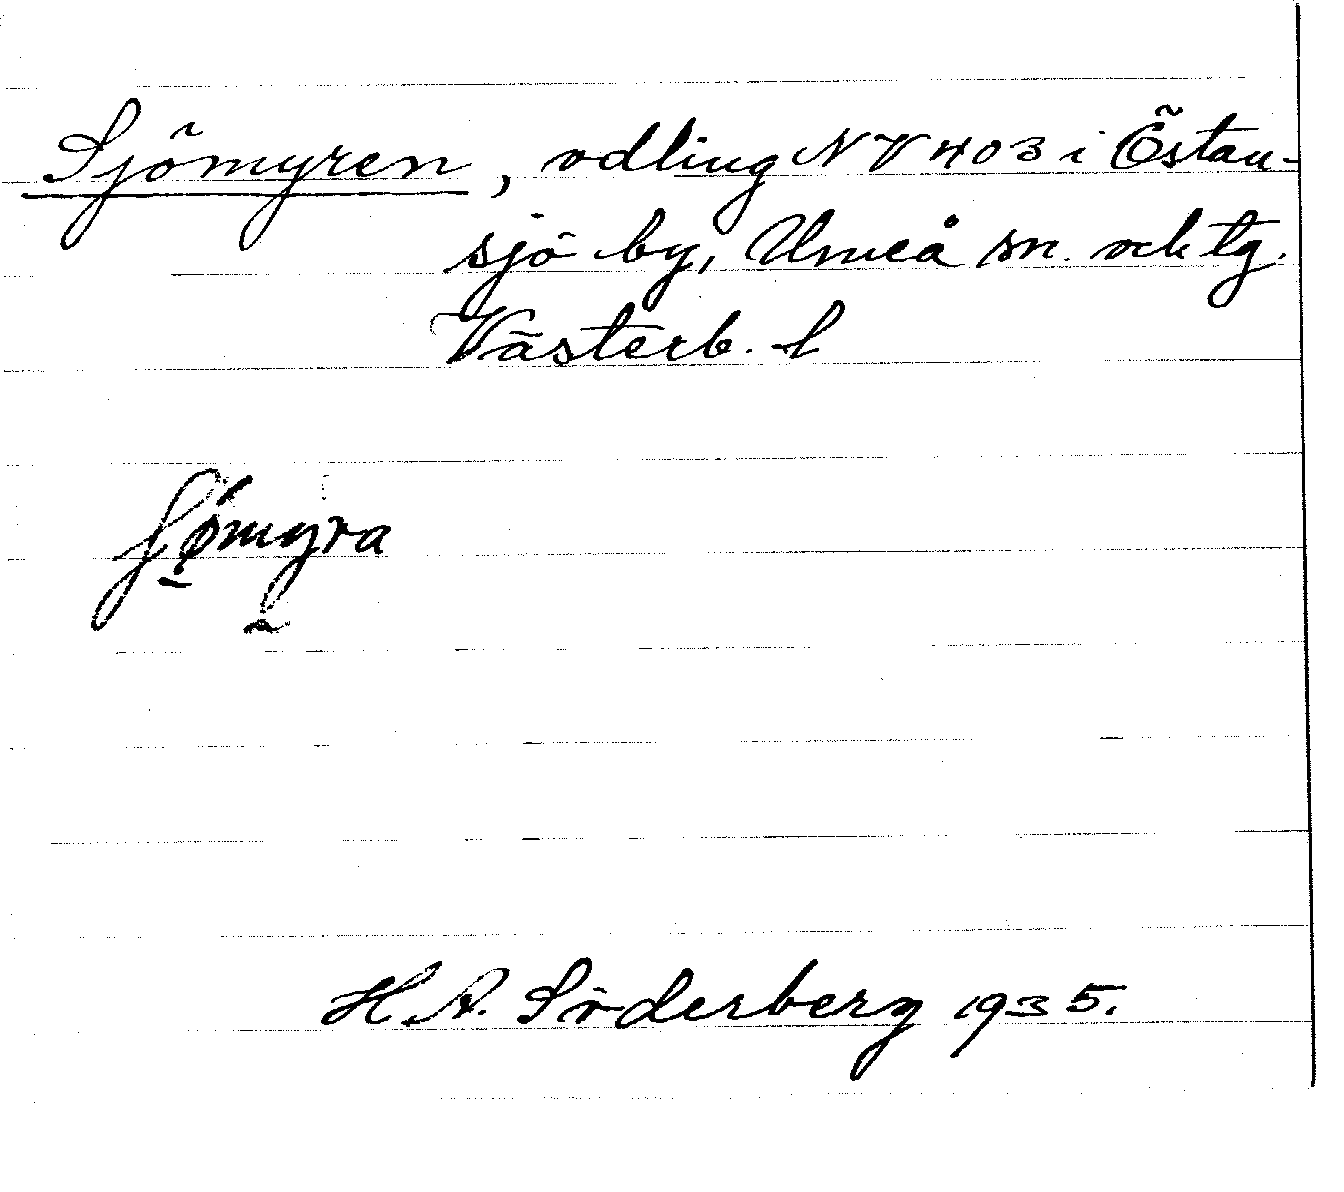 Sjömyren, odling NV 403 i Östan-
sjö by, Umeå sn. och tg.
Västerb. l
ʃömyra
H. A. Söderberg 1935.